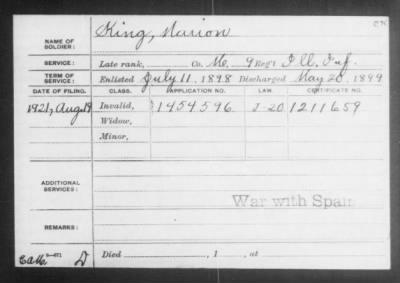 NAME OF SOLDIER: King, Marion
SERVICE: Late rank, Co. M, 9 Reg't Ill. Inf.
TERM OF SERVICE: Enlisted July 11, 1898 Discharged May 20, 1899
DATE OF FILING. CLASS. APPLICATION NO. LAW. CERTIFICATE NO.
1921, Aug. 19 Invalid, 1454596 J-20 1211659
Widow,
Minor,
ADDITIONAL SERVICES:
War with Spain
REMARKS:
3-671
Died , 1 , at